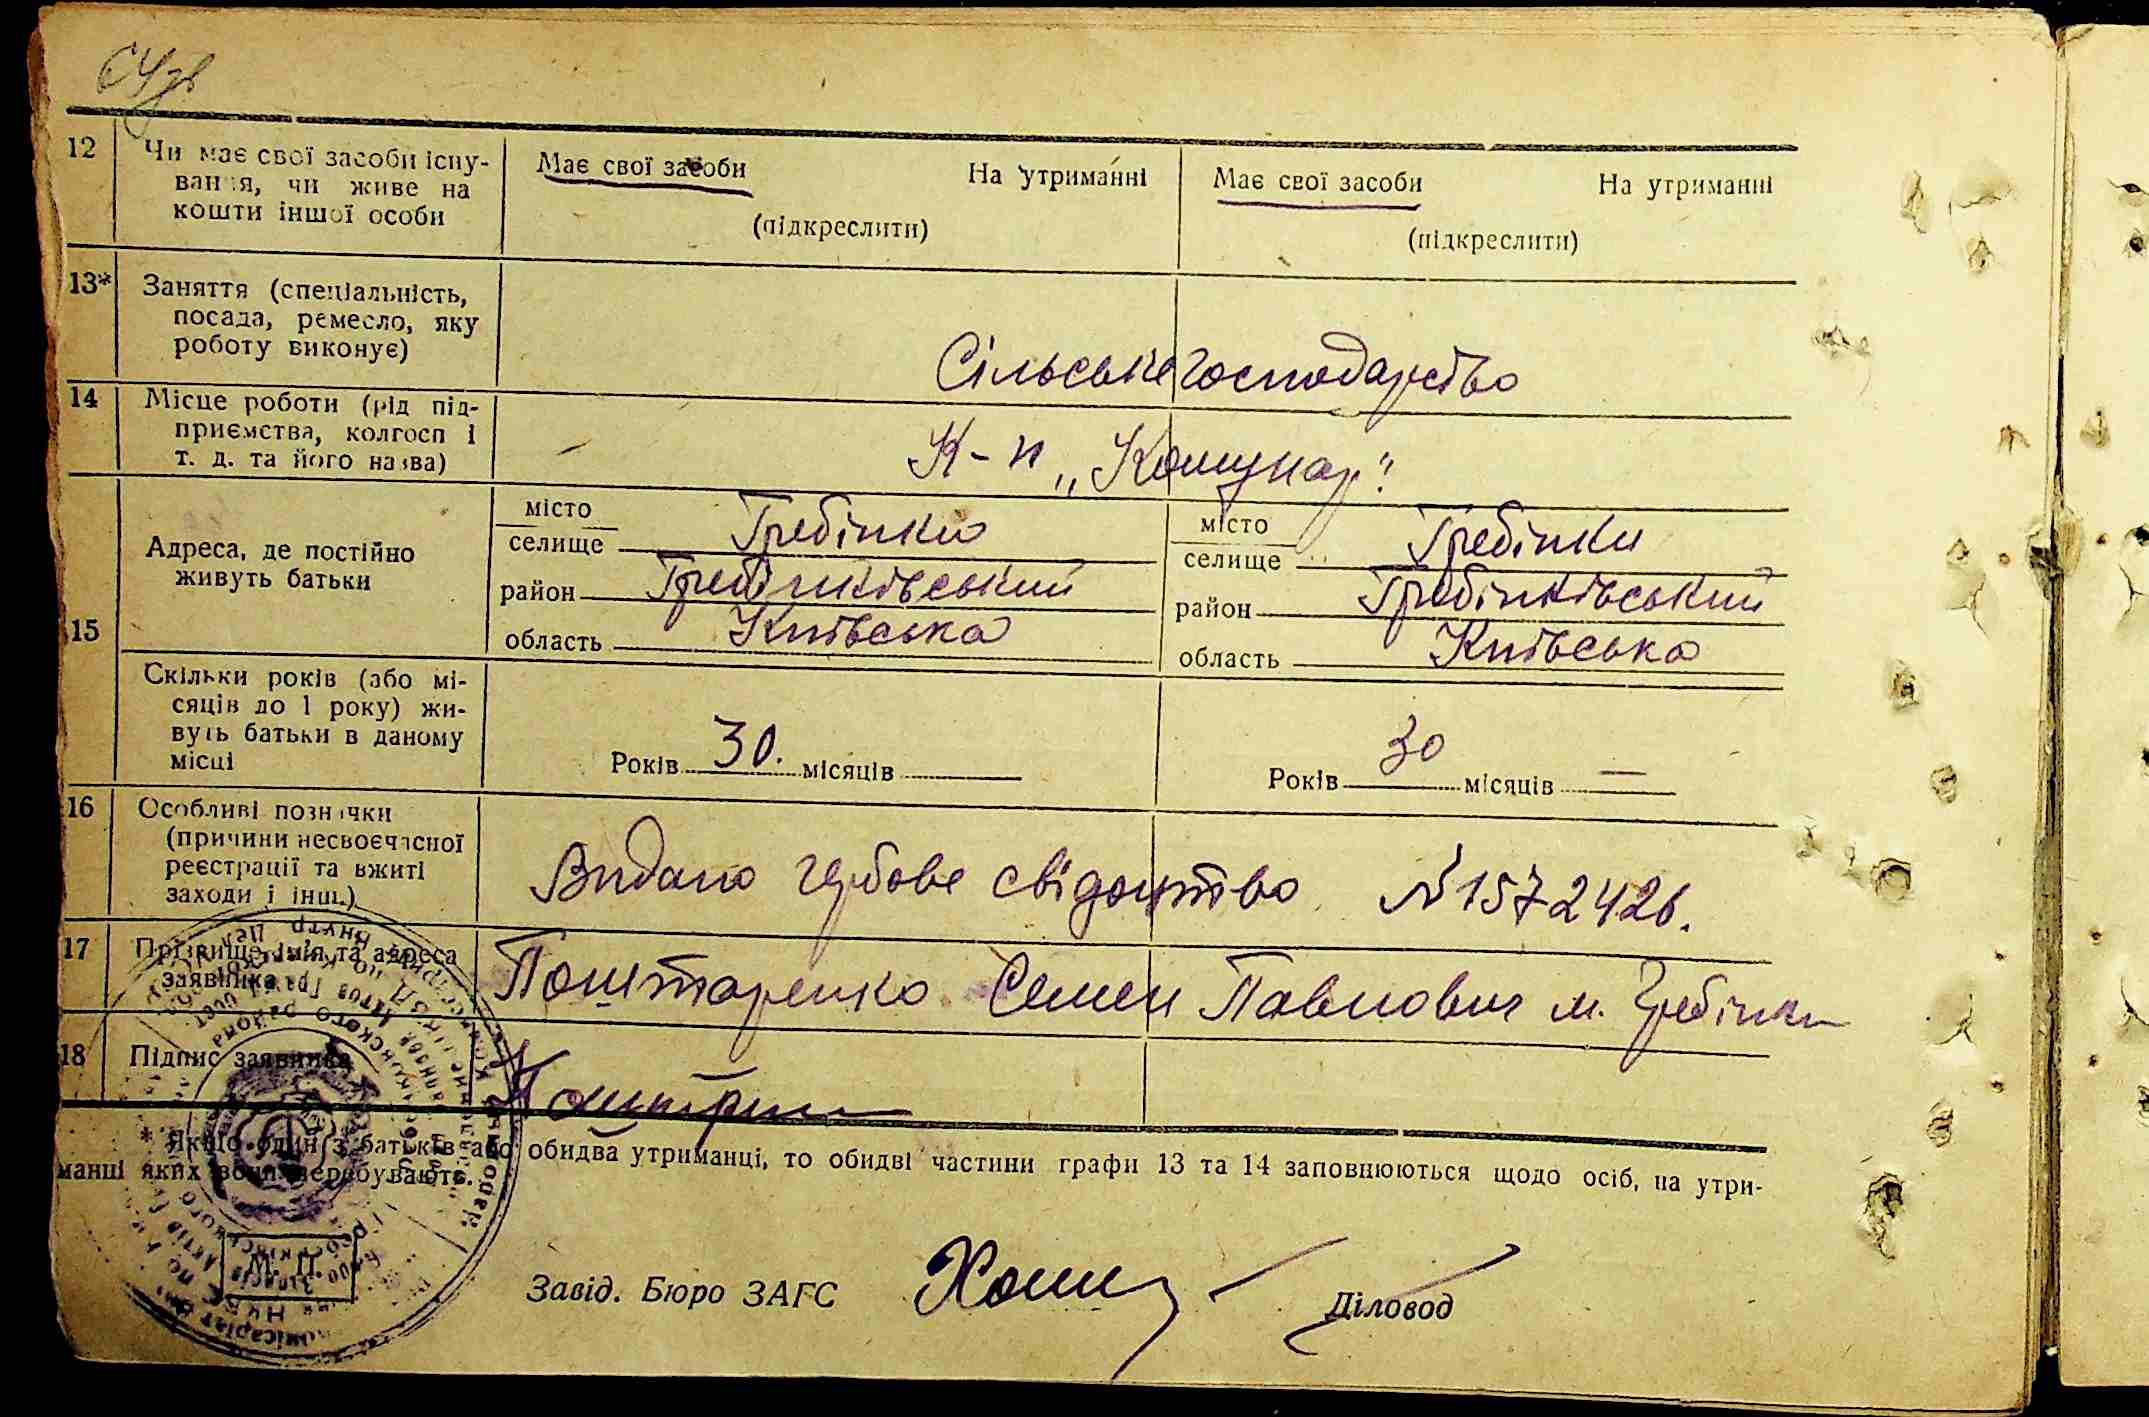 12 Чи має свої засоби існу-
вання, чи живе на
кошти іншої особи
Має свої засоби На утриманні
(підкреслити)
Має свої засоби На утриманні
(підкреслити)
13* Заняття (спеціальність,
посада, ремесло, яку
роботу виконує)
Сільське господарство
14 Місце роботи (рід під-
приємства, колгосп і
т. д. та його назва)
К-п „Комунар"
15 Адреса, де постійно
живуть батьки
місто
селище Гребінки
район Гребінківський
область Київська
місто
селище Гребінки
район Гребінківський
область Київська
Скільки років (або мі-
сяців до 1 року) жи-
вуть батьки в даному
місці
Років 30. місяців
Років 30 місяців —
16 Особливі позначки
(причини несвоєчасної
реєстрації та вжиті
заходи і інш.)
Видано гербове свідоцтво №1572426.
17 Прізвище, імя та адреса
заявника
Поштаренко Семен Павлович м. Гребінки
18 Підпис заявника
* Якщо один з батьків або обидва утриманці, то обидві частини графи 13 та 14 заповнюються щодо осіб, на утри-
манні яких вони перебувають.
М. П.
Завід. Бюро ЗАГС
Діловод